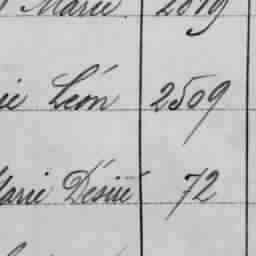 Marie 2019
ie Léon 2509
Marie Désiré 72